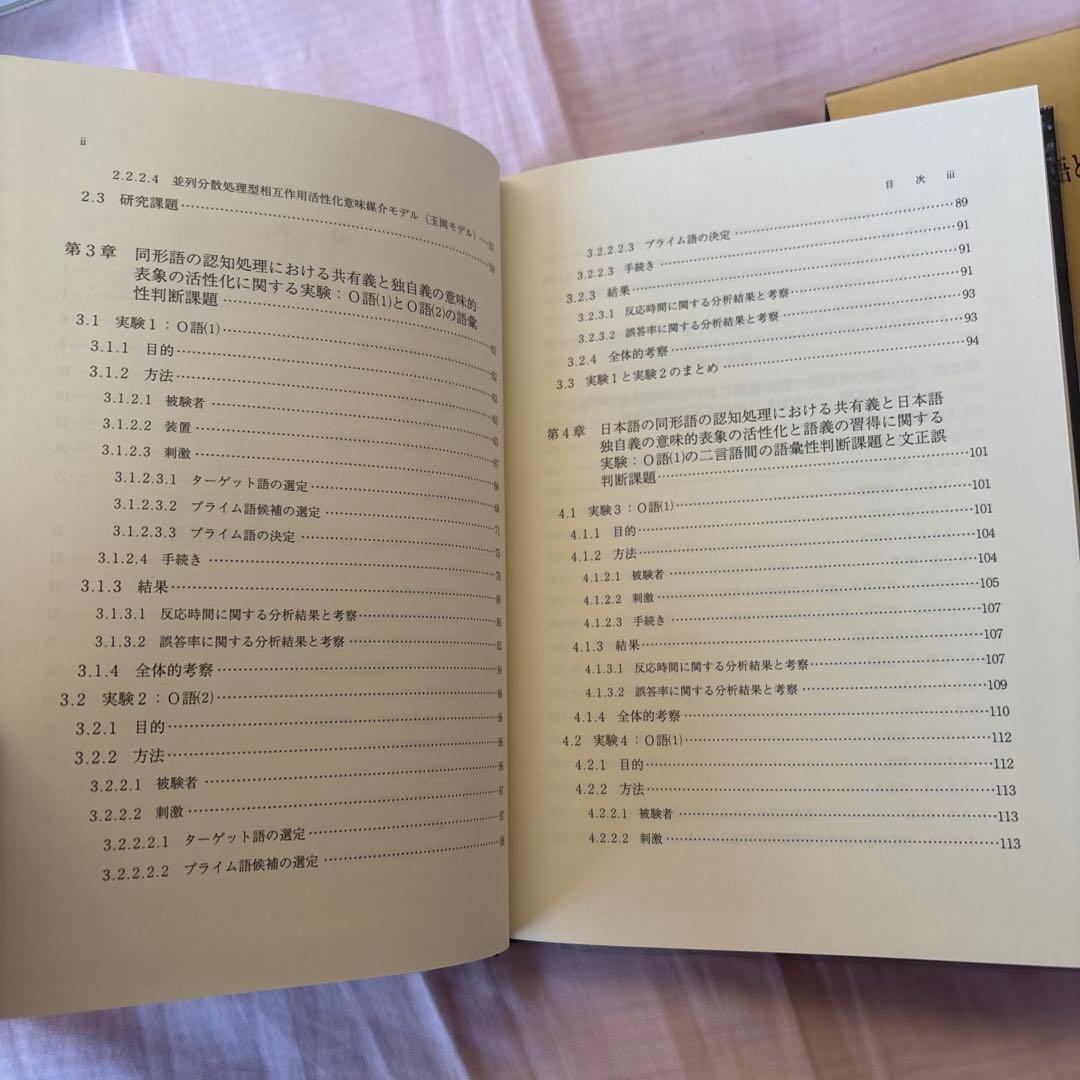 ii
2.2.2.4 並列分散処理型相互作用活性化意味媒介モデル（玉岡モデル）…57
2.3 研究課題……59
第3章 同形語の認知処理における共有義と独自義の意味的
表象の活性化に関する実験：O語(1)とO語(2)の語彙
性判断課題……
3.1 実験1：O語(1)……
3.1.1 目的……62
3.1.2 方法……62
3.1.2.1 被験者……
3.1.2.2 装置……
3.1.2.3 刺激……
3.1.2.3.1 ターゲット語の選定……
3.1.2.3.2 プライム語候補の選定……
3.1.2.3.3 プライム語の決定……75
3.1.2.4 手続き……79
3.1.3 結果……80
3.1.3.1 反応時間に関する分析結果と考察……80
3.1.3.2 誤答率に関する分析結果と考察……82
3.1.4 全体的考察……84
3.2 実験2：O語(2)……86
3.2.1 目的……86
3.2.2 方法……86
3.2.2.1 被験者……86
3.2.2.2 刺激……87
3.2.2.2.1 ターゲット語の選定……87
3.2.2.2.2 プライム語候補の選定……88
目 次 iii
3.2.2.2.3 プライム語の決定……89
3.2.2.3 手続き……91
3.2.3 結果……91
3.2.3.1 反応時間に関する分析結果と考察……91
3.2.3.2 誤答率に関する分析結果と考察……93
3.2.4 全体的考察……93
3.3 実験1と実験2のまとめ……94
第4章 日本語の同形語の認知処理における共有義と日本語
独自義の意味的表象の活性化と語義の習得に関する
実験：O語(1)の二言語間の語彙性判断課題と文正誤
判断課題……101
4.1 実験3：O語(1)……101
4.1.1 目的……101
4.1.2 方法……104
4.1.2.1 被験者……104
4.1.2.2 刺激……105
4.1.2.3 手続き……107
4.1.3 結果……107
4.1.3.1 反応時間に関する分析結果と考察……107
4.1.3.2 誤答率に関する分析結果と考察……109
4.1.4 全体的考察……110
4.2 実験4：O語(1)……112
4.2.1 目的……112
4.2.2 方法……113
4.2.2.1 被験者……113
4.2.2.2 刺激……113
語と